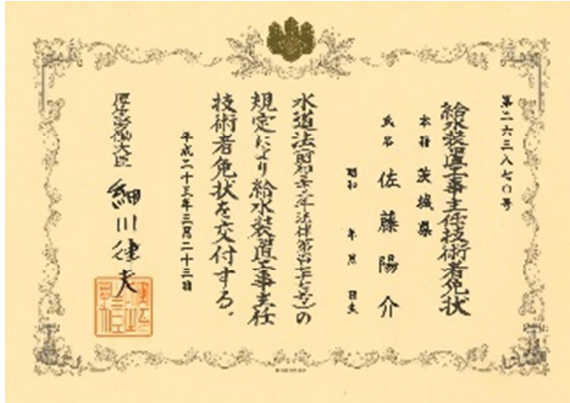 第二六三八七〇号
給水装置工事主任技術者免状
本籍 茨城県
氏名 佐藤陽介
昭和 年 月 日生
水道法(昭和三二年法律第百七十七号)の
規定により給水装置工事主任
技術者免状を交付する。
平成二十三年三月二十三日
厚生労働大臣 細川律夫